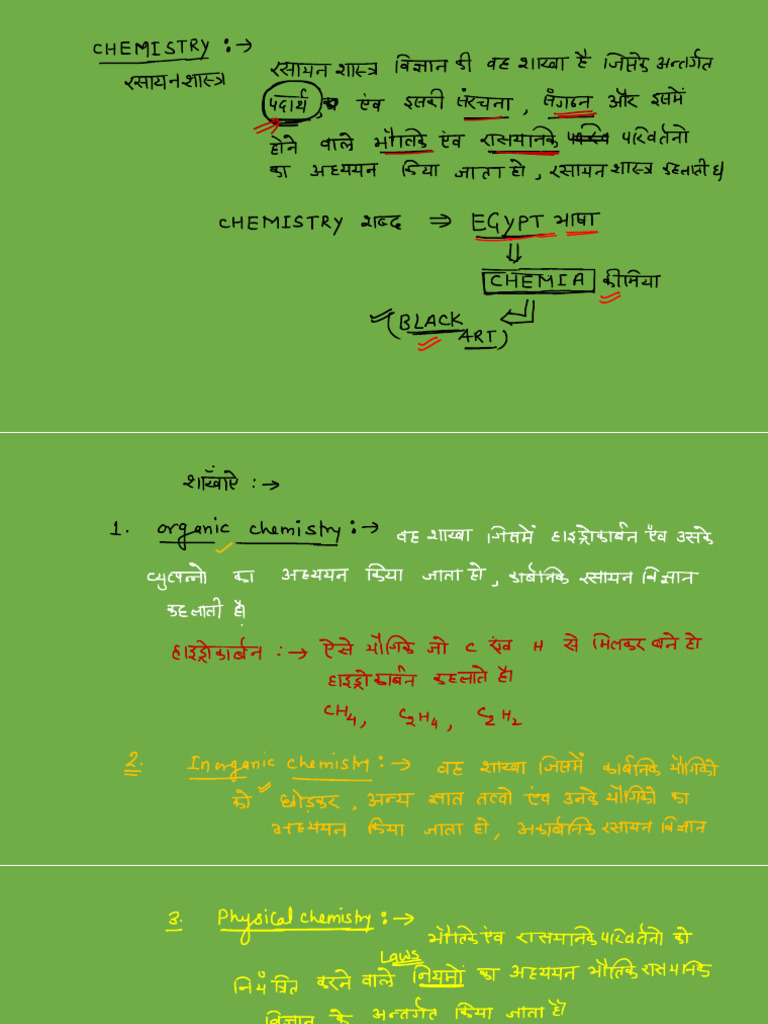 CHEMISTRY :→
रसायन शास्त्र
रसायन शास्त्र विज्ञान की वह शाखा है जिसके अन्तर्गत
पदार्थ, एंव इसकी संरचना, संगठन और इसमें
होने वाले भौतिक एंव रासयानिक परिवर्तनो
का अध्ययन किया जाता हो, रसायन शास्त्र कहलाती है।
CHEMISTRY शब्द ⇒ EGYPT भाषा
⇓
CHEMIA कीमिया
(BLACK
ART)
शाँखाऐ :→
1. organic chemistry :→ वह शाखा जिसमें हाइड्रोकार्बन एँव उसके
व्युत्पन्नो का अध्ययन किया जाता हो, कार्बनिक रसायन विज्ञान
कहलाती है।
हाइड्रोकार्बन :→ ऐसे यौगिक जो C एंव H से मिलकर बने हो
हाइड्रोकार्बन कहलाते है।
CH4, C2H4, C2H2
2. Inorganic chemistry :→ वह शाखा जिसमें कार्बनिक यौगिको
को छोड़कर, अन्य ज्ञात तत्वो एंव उनके यौगिको का
अध्ययन किया जाता हो, अकार्बनिक रसायन विज्ञान
3. Physical chemistry :→ भौतिक एंव रासयानिक परिवर्तनो को
Laws
नियंत्रित करने वाले नियमों का अध्ययन भौतिक रासयानिक
विज्ञान के अन्तर्गत किया जाता है।